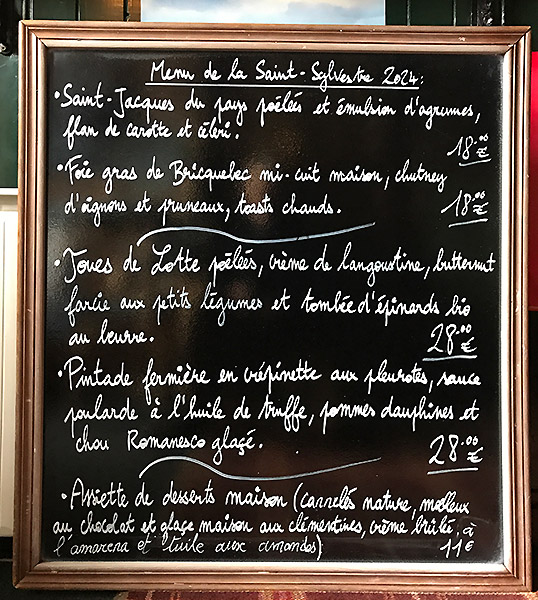 Menu de la Saint-Sylvestre 2024:
• Saint-Jacques du pays poêlées et émulsion d'agrumes,
flan de carotte et céleri.
18.00 €
• Foie gras de Bricquebec mi-cuit maison, chutney
d'oignons et pruneaux, toasts chauds.
18.00 €
• Joues de Lotte poêlées, crème de langoustine, butternut
farcie aux petits légumes et tombée d'épinards bio
au beurre.
28.00 €
• Pintade fermière en crépinette aux pleurotes, sauce
poularde à l'huile de truffe, pommes dauphines et
chou Romanesco glaçé.
28.00 €
• Assiette de desserts maison (carrelés nature, moelleux
au chocolat et glaçe maison aux clémentines, crème brûlée à
l'amarena et tuile aux amandes)
11€